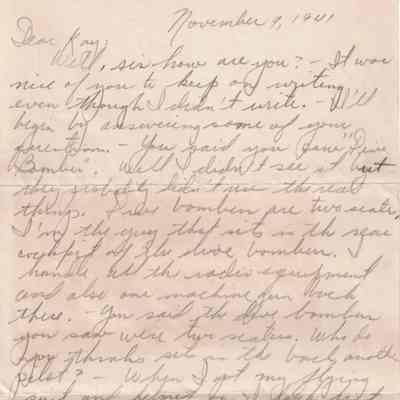 November 9, 1941
Dear Kay:
Well, sir how are you? - It was
nice of you to keep on writing
even though I didn't write. - I'll
begin by answering some of your
questions. - You said you saw "Dive
Bomber". Well I didn't see it but
they probably didn't use the real
things. Dive bombers are two seaters,
I'm the guy that sits in the rear
cockpit of the dive bomber. I
handle all the radio equipment
and also one machine gun back
there. - You said the dive bombers
you saw were two seaters. Who do
you think sits in the back, another
pilot? - When I get my flying
suit and helmet